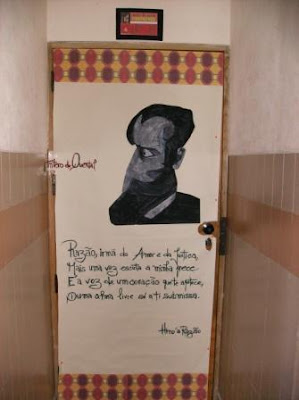 Antero de Quental
Razão, irmã do Amor e da Justiça,
Mais uma vez escuta a minha prece.
É a voz de um coração que te apetece,
Duma alma livre só a ti submissa.
Hino à Razão